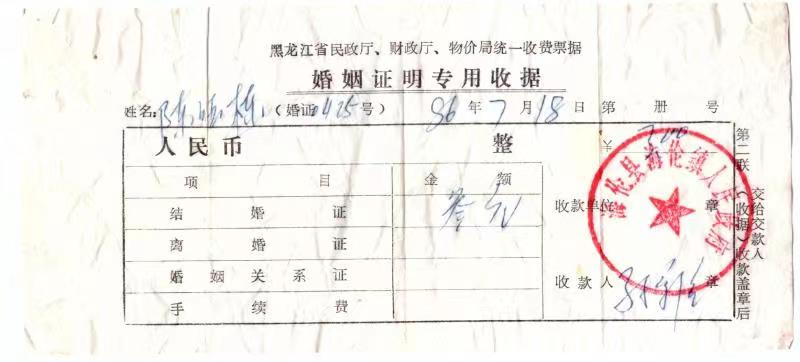 黑龙江省民政厅、财政厅、物价局统一收费票据
婚姻证明专用收据
姓名: 陈 栋 (婚证0425号) 86年7月18日 第 册 号
人民币 整 ¥ 3.00
项 目 金 额
结 婚 证 叁元
离 婚 证
婚姻关系证
手 续 费
收款单位 章
收款人 章
海伦县海伦镇人民政府
第二联(收据)收款盖章后
交给交款人